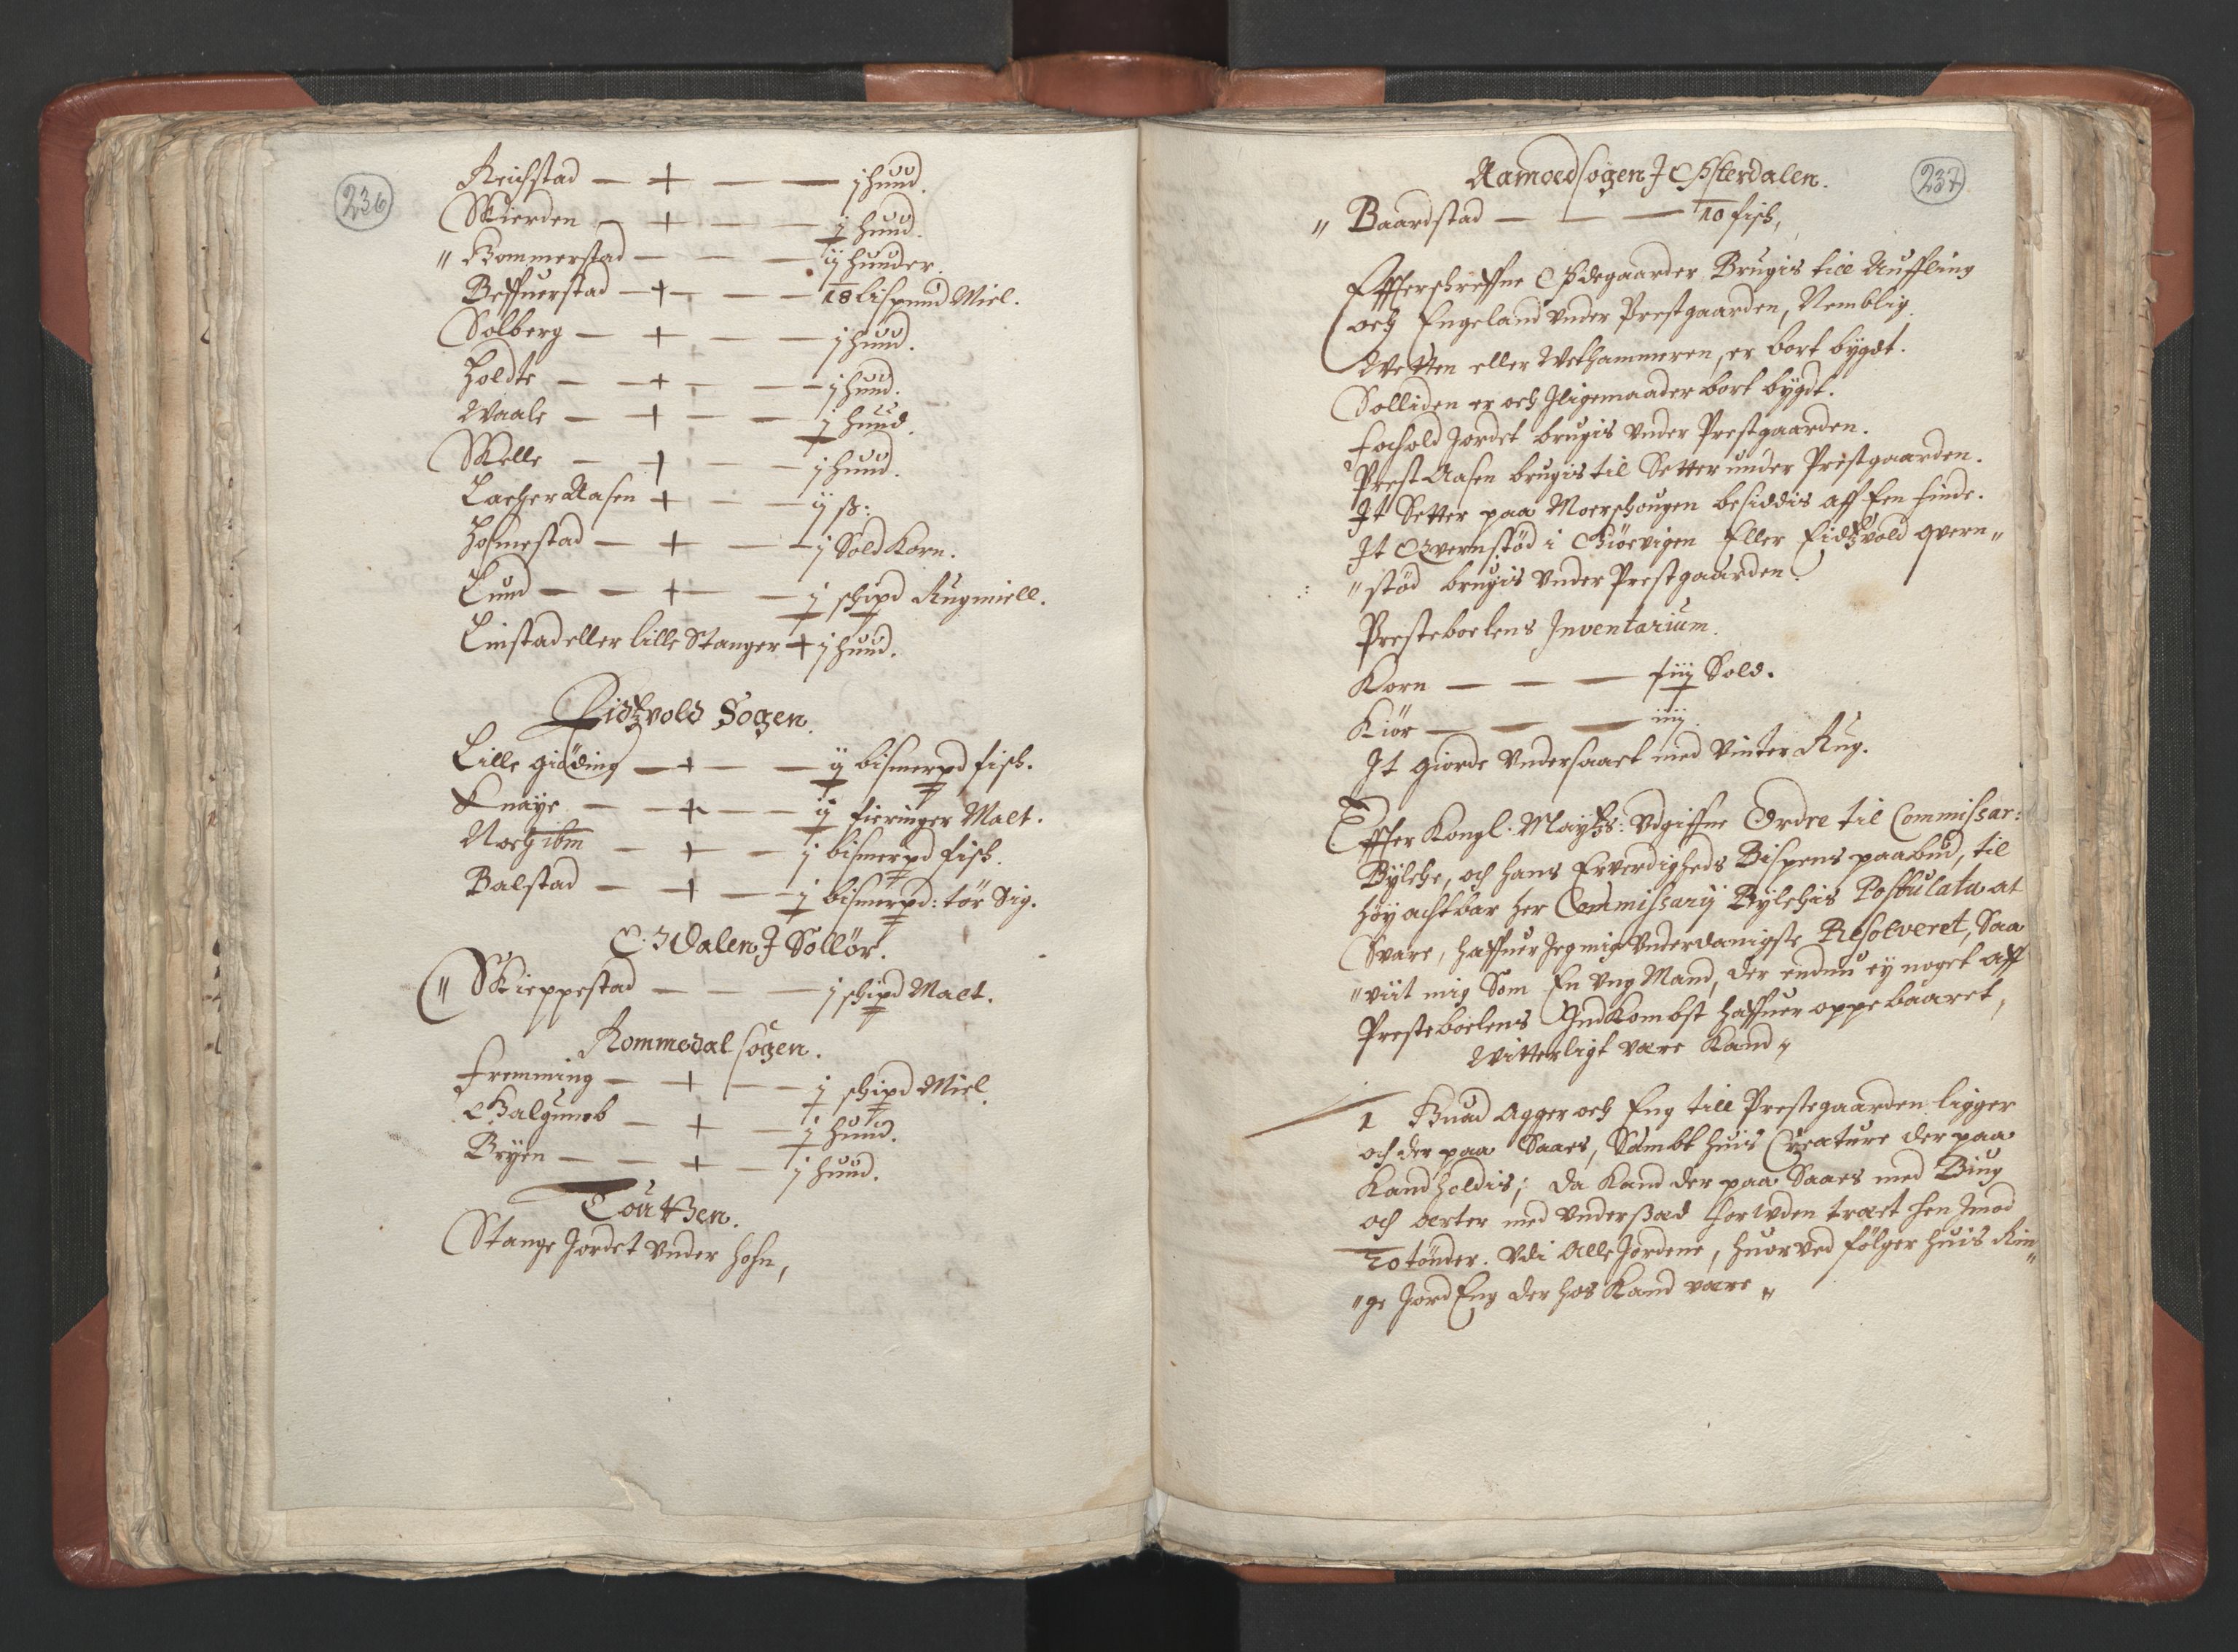 236
Reichstad — + — — j hund.
Skierden — + — — j hund.
" Bommerstad — — — ij hunder.
Beffuerstad — + — — 18 lispund Miel.
Solberg — + — — j hund.
Holdte — + — — j hund.
Waale — + — — j hund.
Melle — + — — j hund.
Lacher Aasen + — — ij ß:
Holmestad — + — — j Sold Korn.
Lund — — + — — j schipd Rugmiell.
Linstad eller lille Stanger + j hund.
Eidtzvold Sogen.
Lille Giöding — + — — ij bismerpd fisch.
Knaye — + — — ij fieringer Malt.
Noch ibm — + — j bismerpd fisch.
Balstad — + — j bismerpd: tör Sig.
Odalen J Sollör.
" Skieppestad — — — j schipd Malt.
Rommedal sogen.
Fremming — + — — j schipd Miel.
Balgumb — + — j hund.
Bryen — — + — j hund.
Toutten.
Stange Jordet vnder Hofn,
237
Aamoed sogen J Österdalen.
" Baardstad — — — 10 fisch,
Effterschreffne Ödegaarder Brugis till Auffling
och Engeland vnder Prestgaarden, Nemblig.
Wetten eller Wethammeren, er bort bygdt.
Solliden er och Jligemaader bort bygdt.
Fochold Jordet brugis vnder Prestgaarden.
Prest Aasen brugis til Setter under Prestgaarden.
It Setter paa Moerschougen besiddis aff Een finde.
It Qvernstöd i Giöevigen Eller Eidtzvold qvern"
"stöd brugis vnder Prestgaarden.
Presteboelens Inventarium.
Korn — — — fiij Sold.
Kiör — — — iiij.
It giorde vndersaaet med Vinter Rug.
Effter Kongl. Maytz: vdgiffne Ordre til Commissar:
Bylche, och hans Erverdigheds Bispens paabud, til
höy achtbar her Commissarij Bylchis Postulata at
Svare, haffuer Jeg mig vnderdanigste Resolveret, Saa
"viit mig Som En vng Mand, der endnu ey noget aff
Presteboelens Indkombst haffuer oppebaaret,
Witterligt være kand"
1 Huad Agger och Eng till Prestegaarden ligger
och der paa Saaes, Sambt huis Creature der paa
Kand holdis; da kand der paa Saaes med Biug
och Aerter med vndersæd foruden træet hen Jmod
20 tönder. Vdi Alle Jordene, huor ved fölger huis Rin"
"ge Jord Eng der hos kand være "